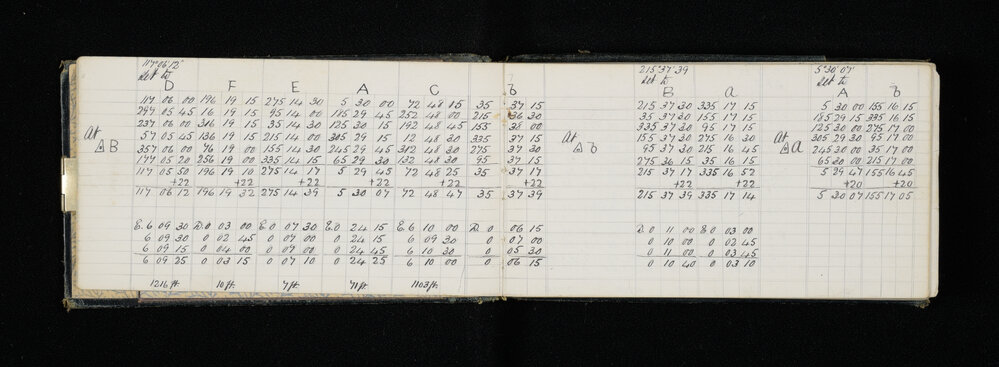 117° 06' 12" 215° 37' 39 5° 30' 07"
Set to Set to Set to
D F E A C b B a A b
117 06 00 196 19 15 275 14 30 5 30 00 72 48 15 35 37 15 215 37 30 335 17 15 5 30 00 155 16 15
297 05 45 16 19 15 95 14 00 185 29 45 252 48 00 215 36 30 35 37 30 155 17 15 185 29 15 335 16 15
237 06 00 316 19 15 35 14 30 125 30 15 192 48 45 155 38 00 335 37 30 95 17 15 125 30 00 275 17 00
At 57 05 45 136 19 15 215 14 00 305 29 15 12 48 30 335 37 15 At 155 37 30 275 17 15 At 305 29 30 35 17 00
△B 357 06 00 76 19 00 155 14 30 245 29 45 312 48 30 275 37 30 △b 95 37 30 215 16 45 △a 245 30 00 35 17 15
177 05 20 256 19 00 335 14 15 65 29 30 132 48 30 95 37 15 275 36 15 35 16 15 65 30 00 215 17 00
117 05 50 196 19 10 275 14 17 5 29 45 72 48 25 35 37 17 215 37 17 335 16 52 5 29 47 155 16 45
+22 +22 +22 +22 +22 +22 +22 +22 +20 +20
117 06 12 196 19 32 275 14 39 5 30 07 72 48 47 35 37 39 215 37 39 335 17 14 5 30 07 155 17 05
E. 6 09 30 D. 0 03 00 E. 0 07 30 E. 0 24 15 E. 6 10 00 D. 0 06 15 D. 0 11 00 E. 0 03 00
6 09 30 0 02 45 0 07 00 0 24 15 6 09 30 0 07 00 0 10 00 0 02 45
6 09 15 0 04 00 0 07 00 0 24 45 6 10 30 0 05 30 0 11 00 0 03 45
6 09 25 0 03 15 0 07 10 0 24 25 6 10 00 0 06 15 0 10 40 0 03 10
1216 ft. 10 ft. 7 ft. 71 ft. 1103 ft.